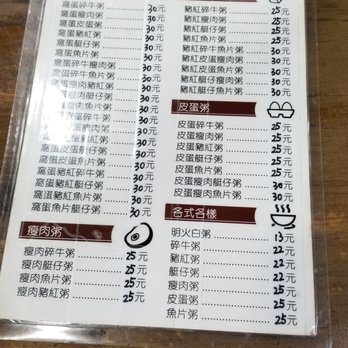 窩蛋碎牛粥 30元
窩蛋瘦肉粥 30元
窩蛋皮蛋粥 30元
窩蛋豬紅粥 30元
窩蛋艇仔粥 30元
窩蛋魚片粥 30元
窩蛋碎牛瘦肉粥 30元
窩蛋碎牛魚片粥 30元
窩蛋瘦肉豬紅粥 30元
瘦肉艇仔粥 30元
瘦肉魚片粥 30元
皮蛋碎牛粥 30元
皮蛋瘦肉粥 30元
窩蛋皮蛋豬紅粥 30元
窩蛋皮蛋艇仔粥 30元
窩蛋皮蛋魚片粥 30元
窩蛋豬紅艇仔粥 30元
窩蛋豬紅魚片粥 30元
窩蛋艇仔粥 30元
窩蛋魚片艇仔粥 30元
瘦肉粥
瘦肉碎牛粥 25元
瘦肉艇仔粥 25元
瘦肉魚片粥 25元
瘦肉豬紅粥 25元
豬紅碎牛粥 25元
豬紅瘦肉粥 25元
豬紅艇仔粥 25元
豬紅魚片粥 25元
豬紅碎牛魚片粥 30元
豬紅皮蛋魚片粥 30元
豬紅瘦肉魚片粥 30元
豬紅瘦肉艇仔粥 30元
皮蛋粥
皮蛋碎牛粥 25元
皮蛋瘦肉粥 25元
皮蛋豬紅粥 25元
皮蛋艇仔粥 25元
皮蛋魚片粥 25元
皮蛋瘦肉粥 30元
皮蛋瘦肉艇仔粥 30元
皮蛋瘦肉魚片粥 30元
各式各樣
明火白粥 13元
碎牛粥 22元
豬紅粥 22元
艇仔粥 22元
瘦肉粥 25元
皮蛋粥 25元
魚片粥 25元